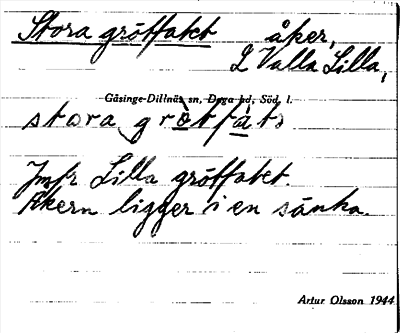 Stora grötfatet åker,
L Valla Lilla,
Gåsinge-Dillnäs sn, Daga hd, Söd. l.
stora grötfàtə
Jmfr Lilla grötfatet.
Åkern ligger i en sänka.
Artur Olsson 1944